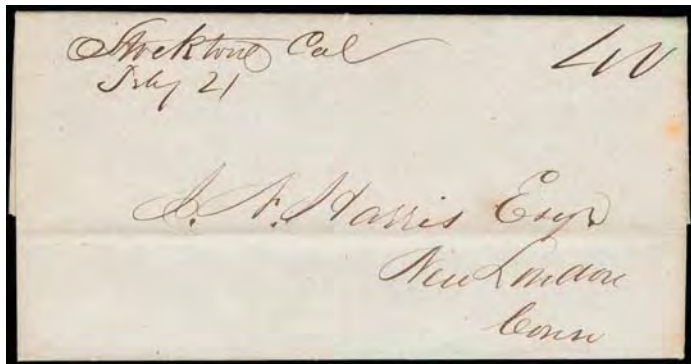 Stockton Cal
40
July 21
J. N. Harris Esqr
New London
Conn